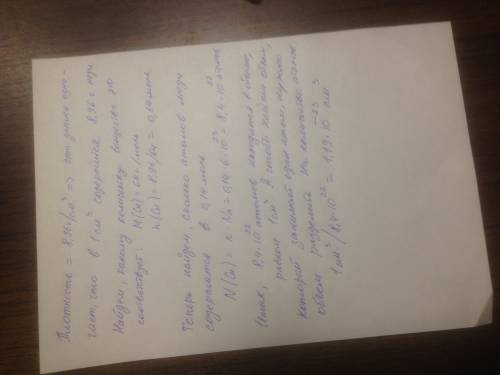 Плотность = 8,96 г/см³ => это данные озна-
чает, что в 1 см³ содержится 8,96 г меди
Найдем, какому количеству вещества это
соответствует: M(Cu) = 64 г/моль
n(Cu) = 8,96/64 = 0,14 моль
Теперь найдем, сколько атомов меди
содержится в 0,14 моль
N(Cu) = n · Na = 0,14 · 6 · 10²³ = 8,4 · 10²² атомов
Итак, 8,4 · 10²² атомов находится в объеме,
равном 1 см³. А чтобы найти объем,
который занимает один атом, нужно
объем разделить на количество атомов,
1 см³/8,4 · 10²² = 1,19 · 10⁻²³ см³